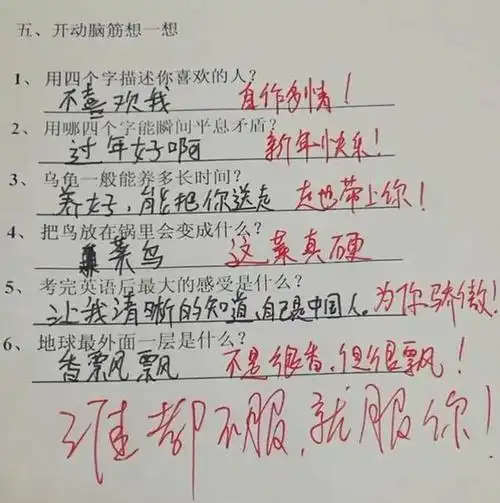 五、开动脑筋想一想
1、用四个字描述你喜欢的人?
不喜欢我 自作多情！
2、用哪四个字能瞬间平息矛盾?
过年好啊 新年快乐！
3、乌龟一般能养多长时间?
养好，能把你送走 走也带上你！
4、把鸟放在锅里会变成什么?
菜鸟 这菜真硬
5、考完英语后最大的感受是什么?
让我清晰的知道，自己是中国人。为你骄傲！
6、地球最外面一层是什么?
香飘飘 不是很香，但很飘！
谁都不服，就服你！